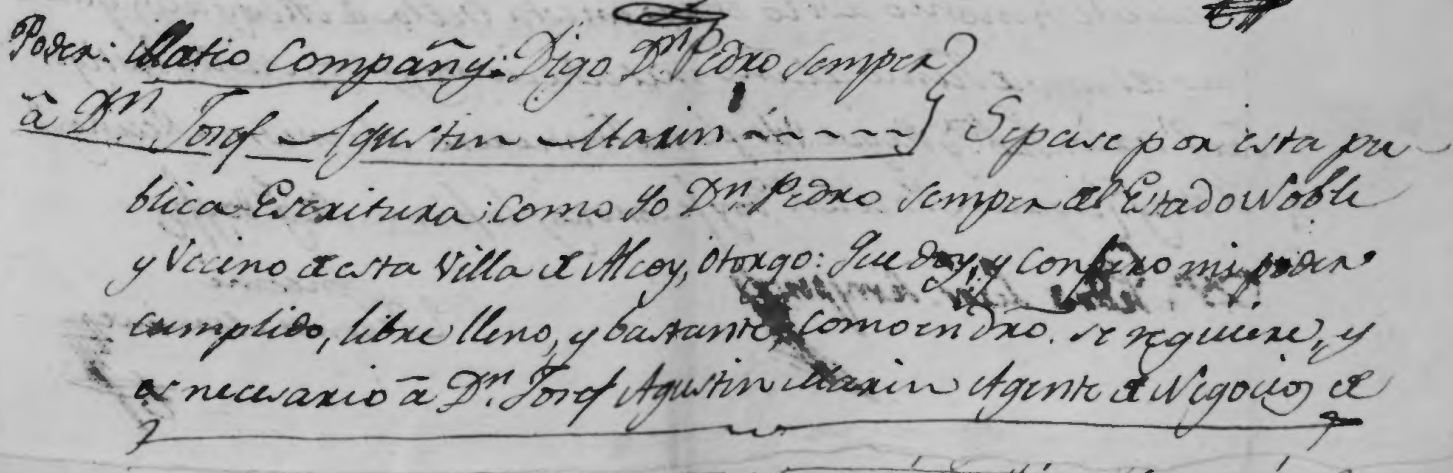 Poder: Matio Compañy: Digo Dn. Pedro Semper
â Dn. Josef Agustin Marin ~ ~ ~ ~ Sepase por esta pu-
blica Escritura: como Yo Dn. Pedro Semper del Estado Noble
y Vecino de esta Villa de Alcoy, Otorgo: Que doy, y confiero mi poder
cumplido, libre lleno, y bastante, como en dro. se requiere, y
es necesario â Dn. Josef Agustin Marin Agente de Negocios de